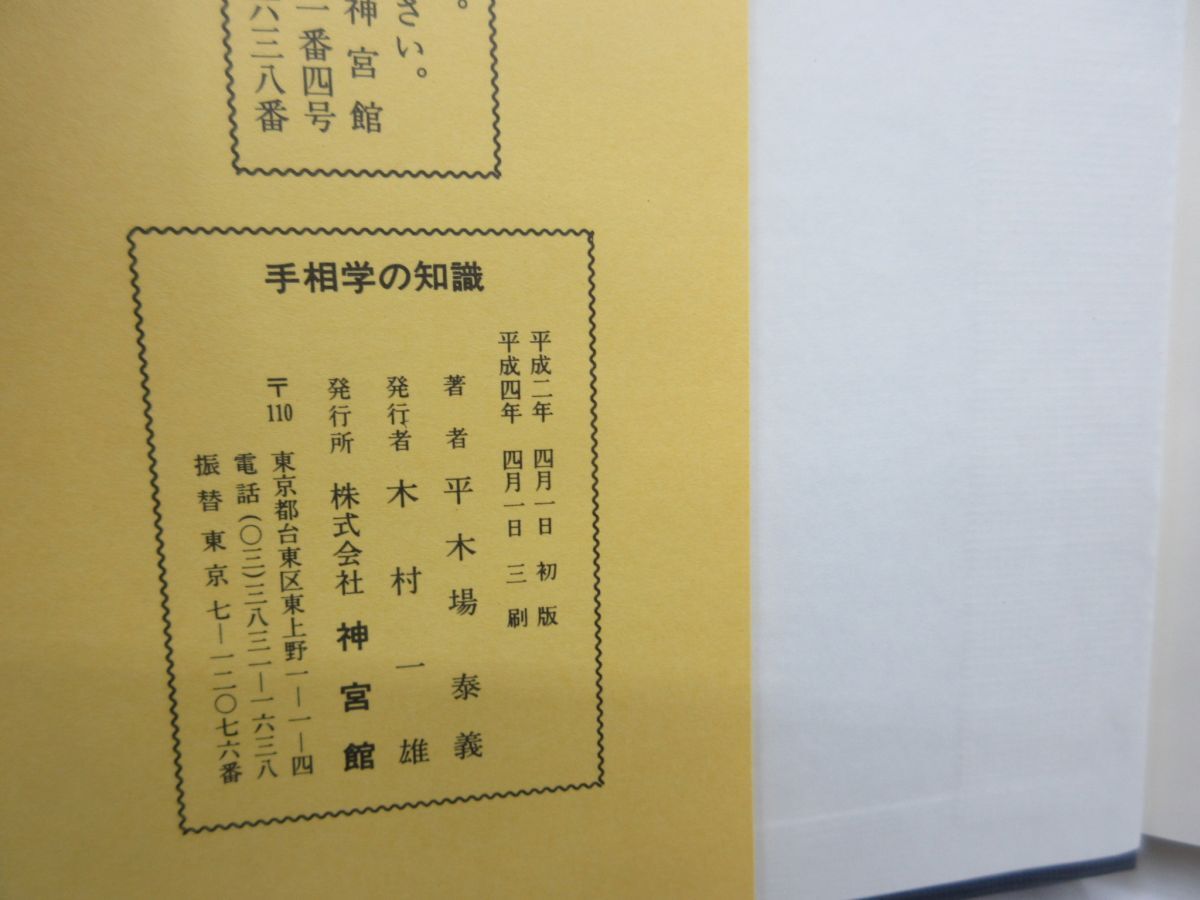 さい。
神宮館
一番四号
六三八番
手相学の知識
平成二年 四月一日 初版
平成四年 四月一日 三刷
著者 平木場 泰義
発行者 木村一雄
発行所 株式会社 神宮館
〒110 東京都台東区東上野一―一―四
電話(〇三)三八三一―一六三八
振替 東京七―一二〇七六番